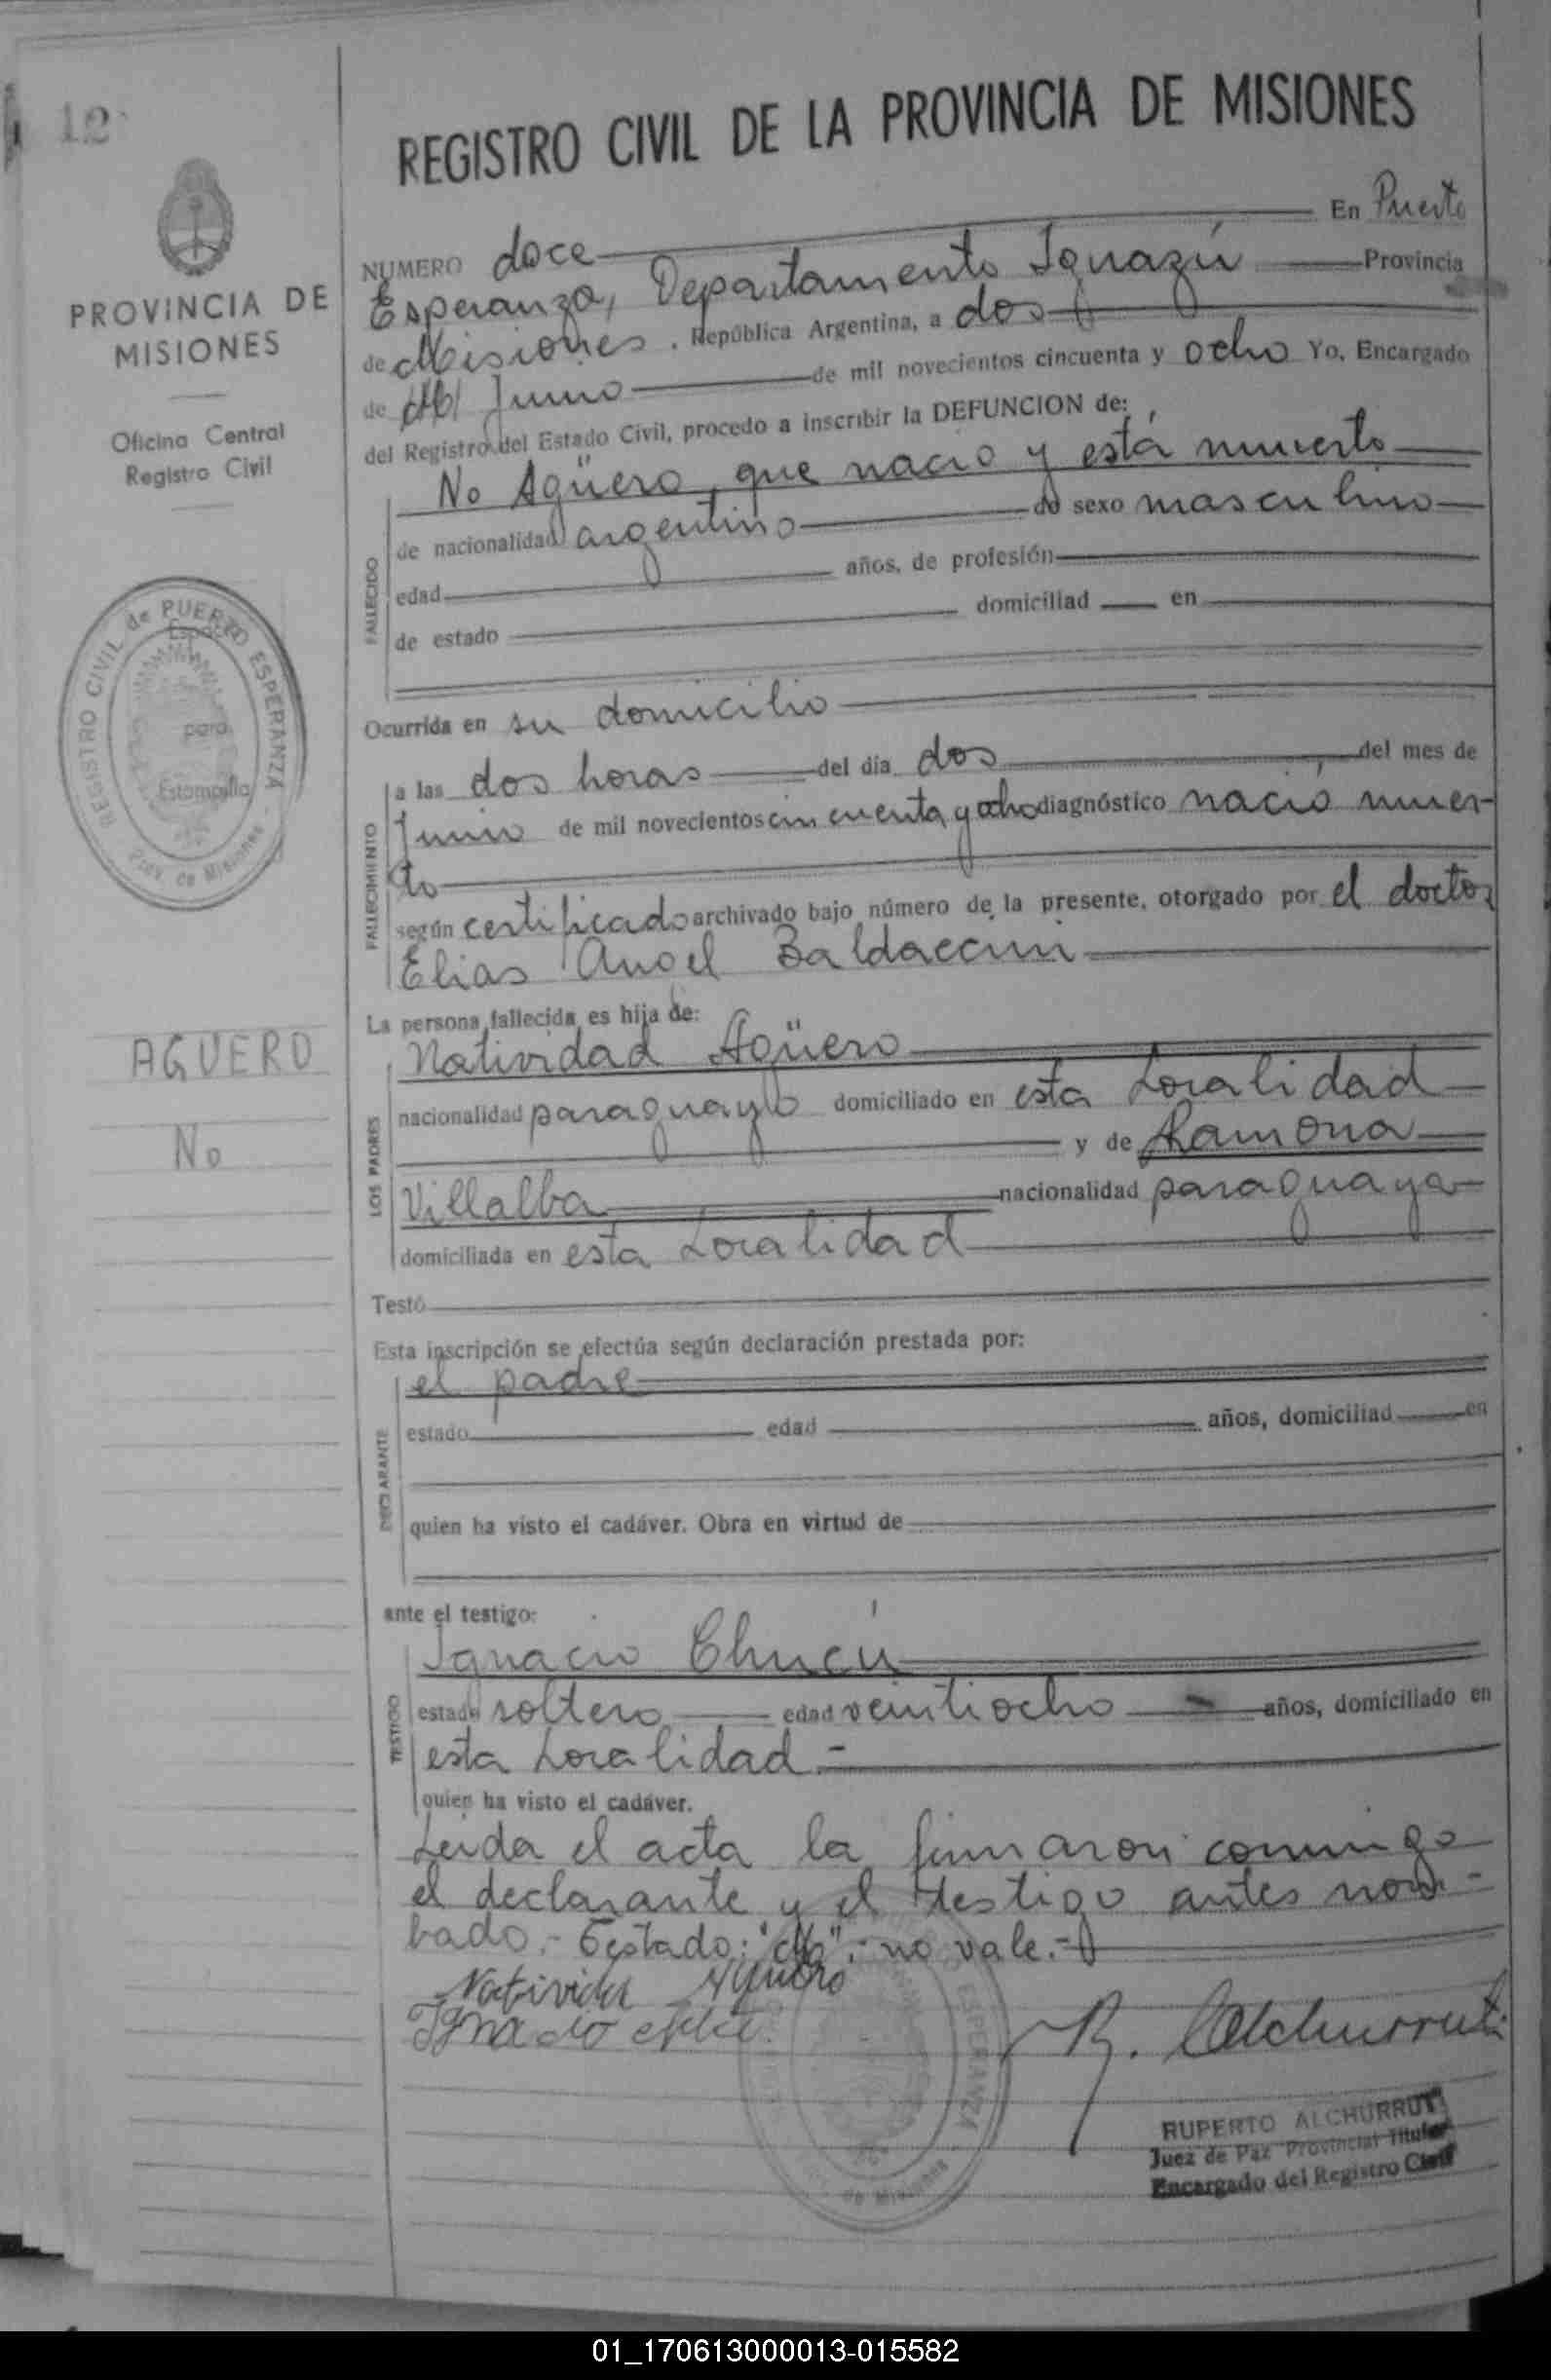 12
PROVINCIA DE
MISIONES
Oficina Central
Registro Civil
REGISTRO CIVIL de PUERTO ESPERANZA - Prov. de Misiones -
Espacio
para
Estampilla
AGUERO
No
REGISTRO CIVIL DE LA PROVINCIA DE MISIONES
NUMERO doce En Puerto
Esperanza, Departamento Iguazú Provincia
de Misiones. República Argentina, a dos
de Junio de mil novecientos cincuenta y ocho Yo, Encargado
del Registro del Estado Civil, procedo a inscribir la DEFUNCION de:
No Agüero, que nació y está muerto
FALLECIDO
de nacionalidad argentino de sexo masculino
edad años, de profesión
de estado domiciliad en
Ocurrida en su domicilio
FALLECIMIENTO
a las dos horas del día dos del mes de
Junio de mil novecientos cincuenta y ocho diagnóstico nació muer-
to
según certificado archivado bajo número de la presente, otorgado por el doctor
Elias Angel Baldaccini
La persona fallecida es hija de:
LOS PADRES
Natividad Agüero
nacionalidad paraguayo domiciliado en esta Localidad
y de Ramona
Villalba nacionalidad paraguaya
domiciliada en esta Localidad
Testó
Esta inscripción se efectúa según declaración prestada por:
DECLARANTE
el padre
estado edad años, domiciliad en
quien ha visto el cadáver. Obra en virtud de
ante el testigo:
TESTIGO
Ignacio Chucú
estado soltero edad veintiocho años, domiciliado en
esta Localidad.-
quien ha visto el cadáver.
Leida el acta la firmaron conmigo
el declarante y el testigo antes nom-
bado.- Testado: no vale.-
Natividad Aguero
Ignacio
R. Alchurrut
RUPERTO ALCHURRUT
Juez de Paz Provincial Titular
Encargado del Registro Civil
01_170613000013-015582